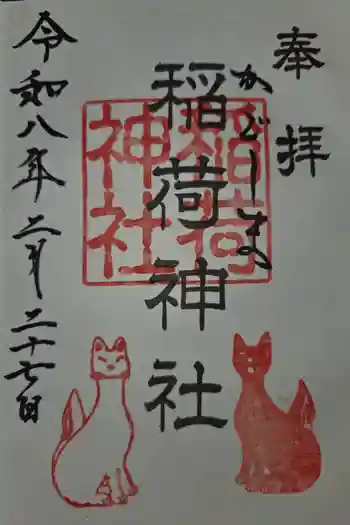 奉拝
かどしまへ
稲荷神社
稲荷
神社
令和八年二月二十七日